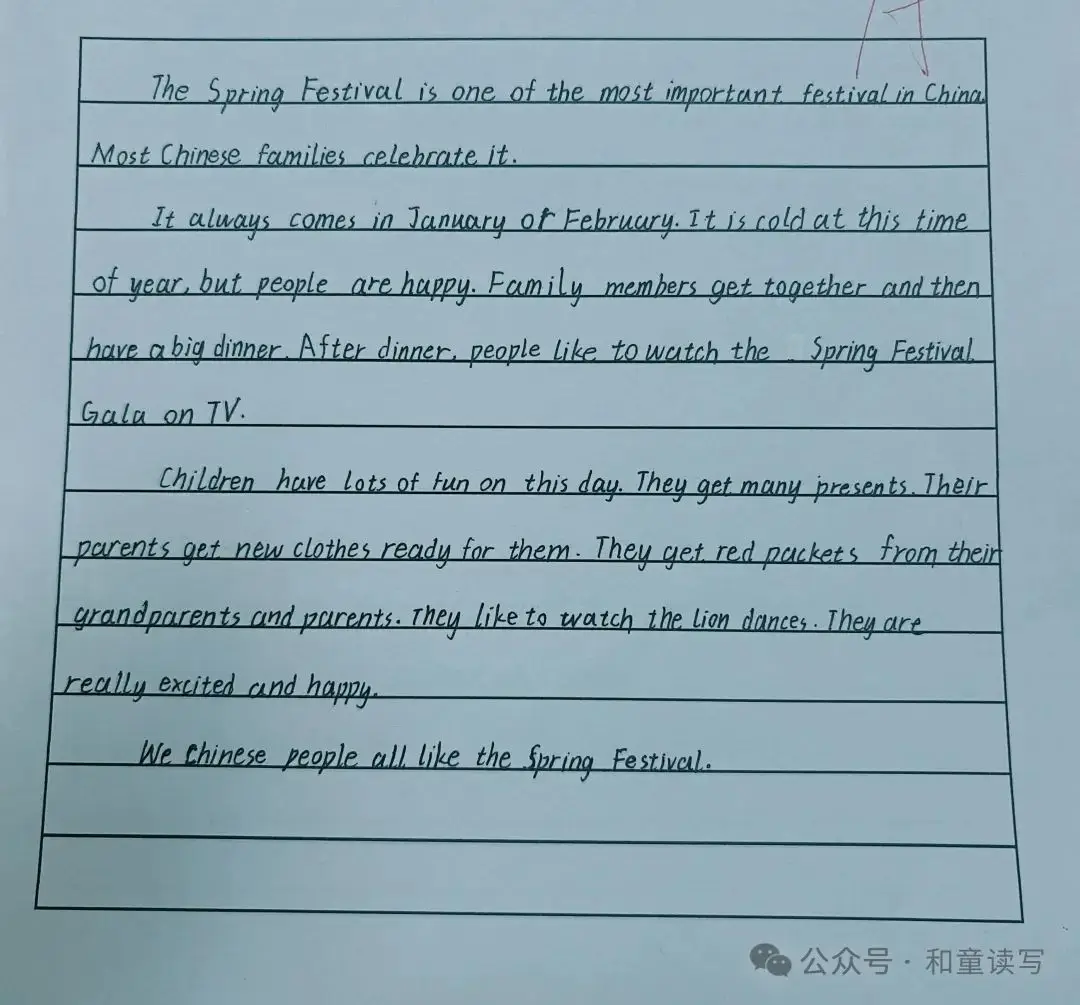 A
The Spring Festival is one of the most important festival in China.
Most Chinese families celebrate it.
It always comes in January or February. It is cold at this time
of year, but people are happy. Family members get together and then
have a big dinner. After dinner, people like to watch the Spring Festival
Gala on TV.
Children have lots of fun on this day. They get many presents. Their
parents get new clothes ready for them. They get red packets from their
grandparents and parents. They like to watch the lion dances. They are
really excited and happy.
We Chinese people all like the Spring Festival.
公众号·和童读写